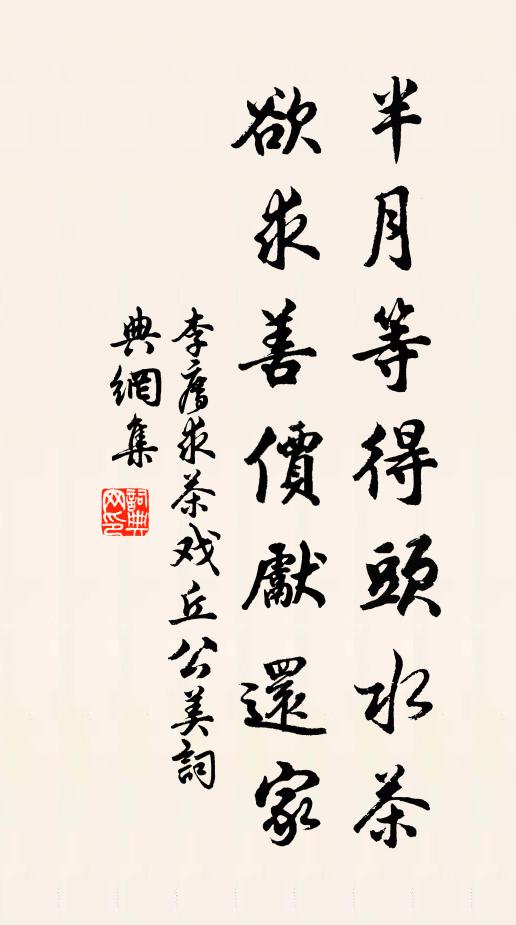 半月等得頭水茶
欲求善價獻還家
李廌求茶戏丘公美詞
典網集
詞典
网印